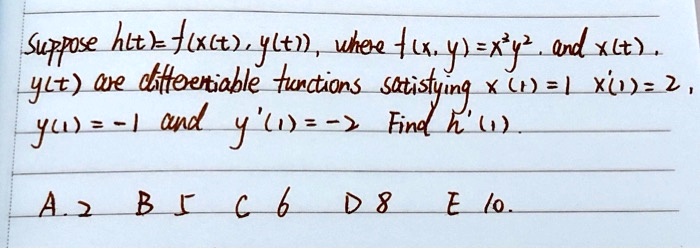 Suppose h(t)=f(x(t), y(t)), where f(x, y)=x³y². and x(t).
y(t) are differentiable functions satisfying x(1)=1 x'(1)=2,
y(1)=-1 and y'(1)=-2 Find h'(1).
A. 2 B 5 C 6 D 8 E 10.